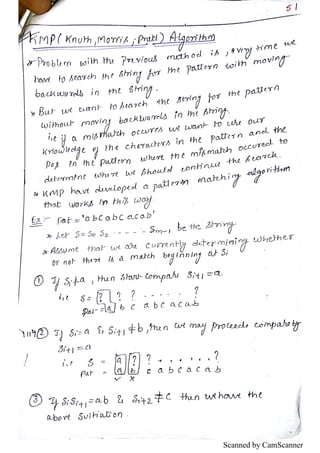 51
KMP ( Knuth, Morris, Pratt) Algorithm
* Problem with the previous method is, every time we
have to search the string for the pattern with moving
backwards in the string.
* But we want to search the string for the pattern
without moving backwards in the string.
ie if a mismatch occures we want to use our
knowledge of the characters in the pattern and the
pos in the pattern where the mismatch occured to
determine where we should continue the search.
* KMP have developed a pattern matching algorithm
that works in this way.
Ex:- Pat = 'abcabcacab'
* Let S = S0 S2 ------ Sm-1 be the string
* Assume that we are currently determining whether
or not there is a match beginning at Si
① If Si≠a, then start compare Si+1 = a.
i.e S = ? ? ? . . . . . ?
Pat = a b c a b c a c a b
② If Si=a & Si+1 ≠ b, then we may proceede compare by
Si+1 = a
i.e S = a ? ? . . . . . . ?
Pat = a b c a b c a c a b
✓ x
③ If SiSi+1 = ab & Si+2 ≠ c then we have the
above suitiation.
Scanned by CamScanner